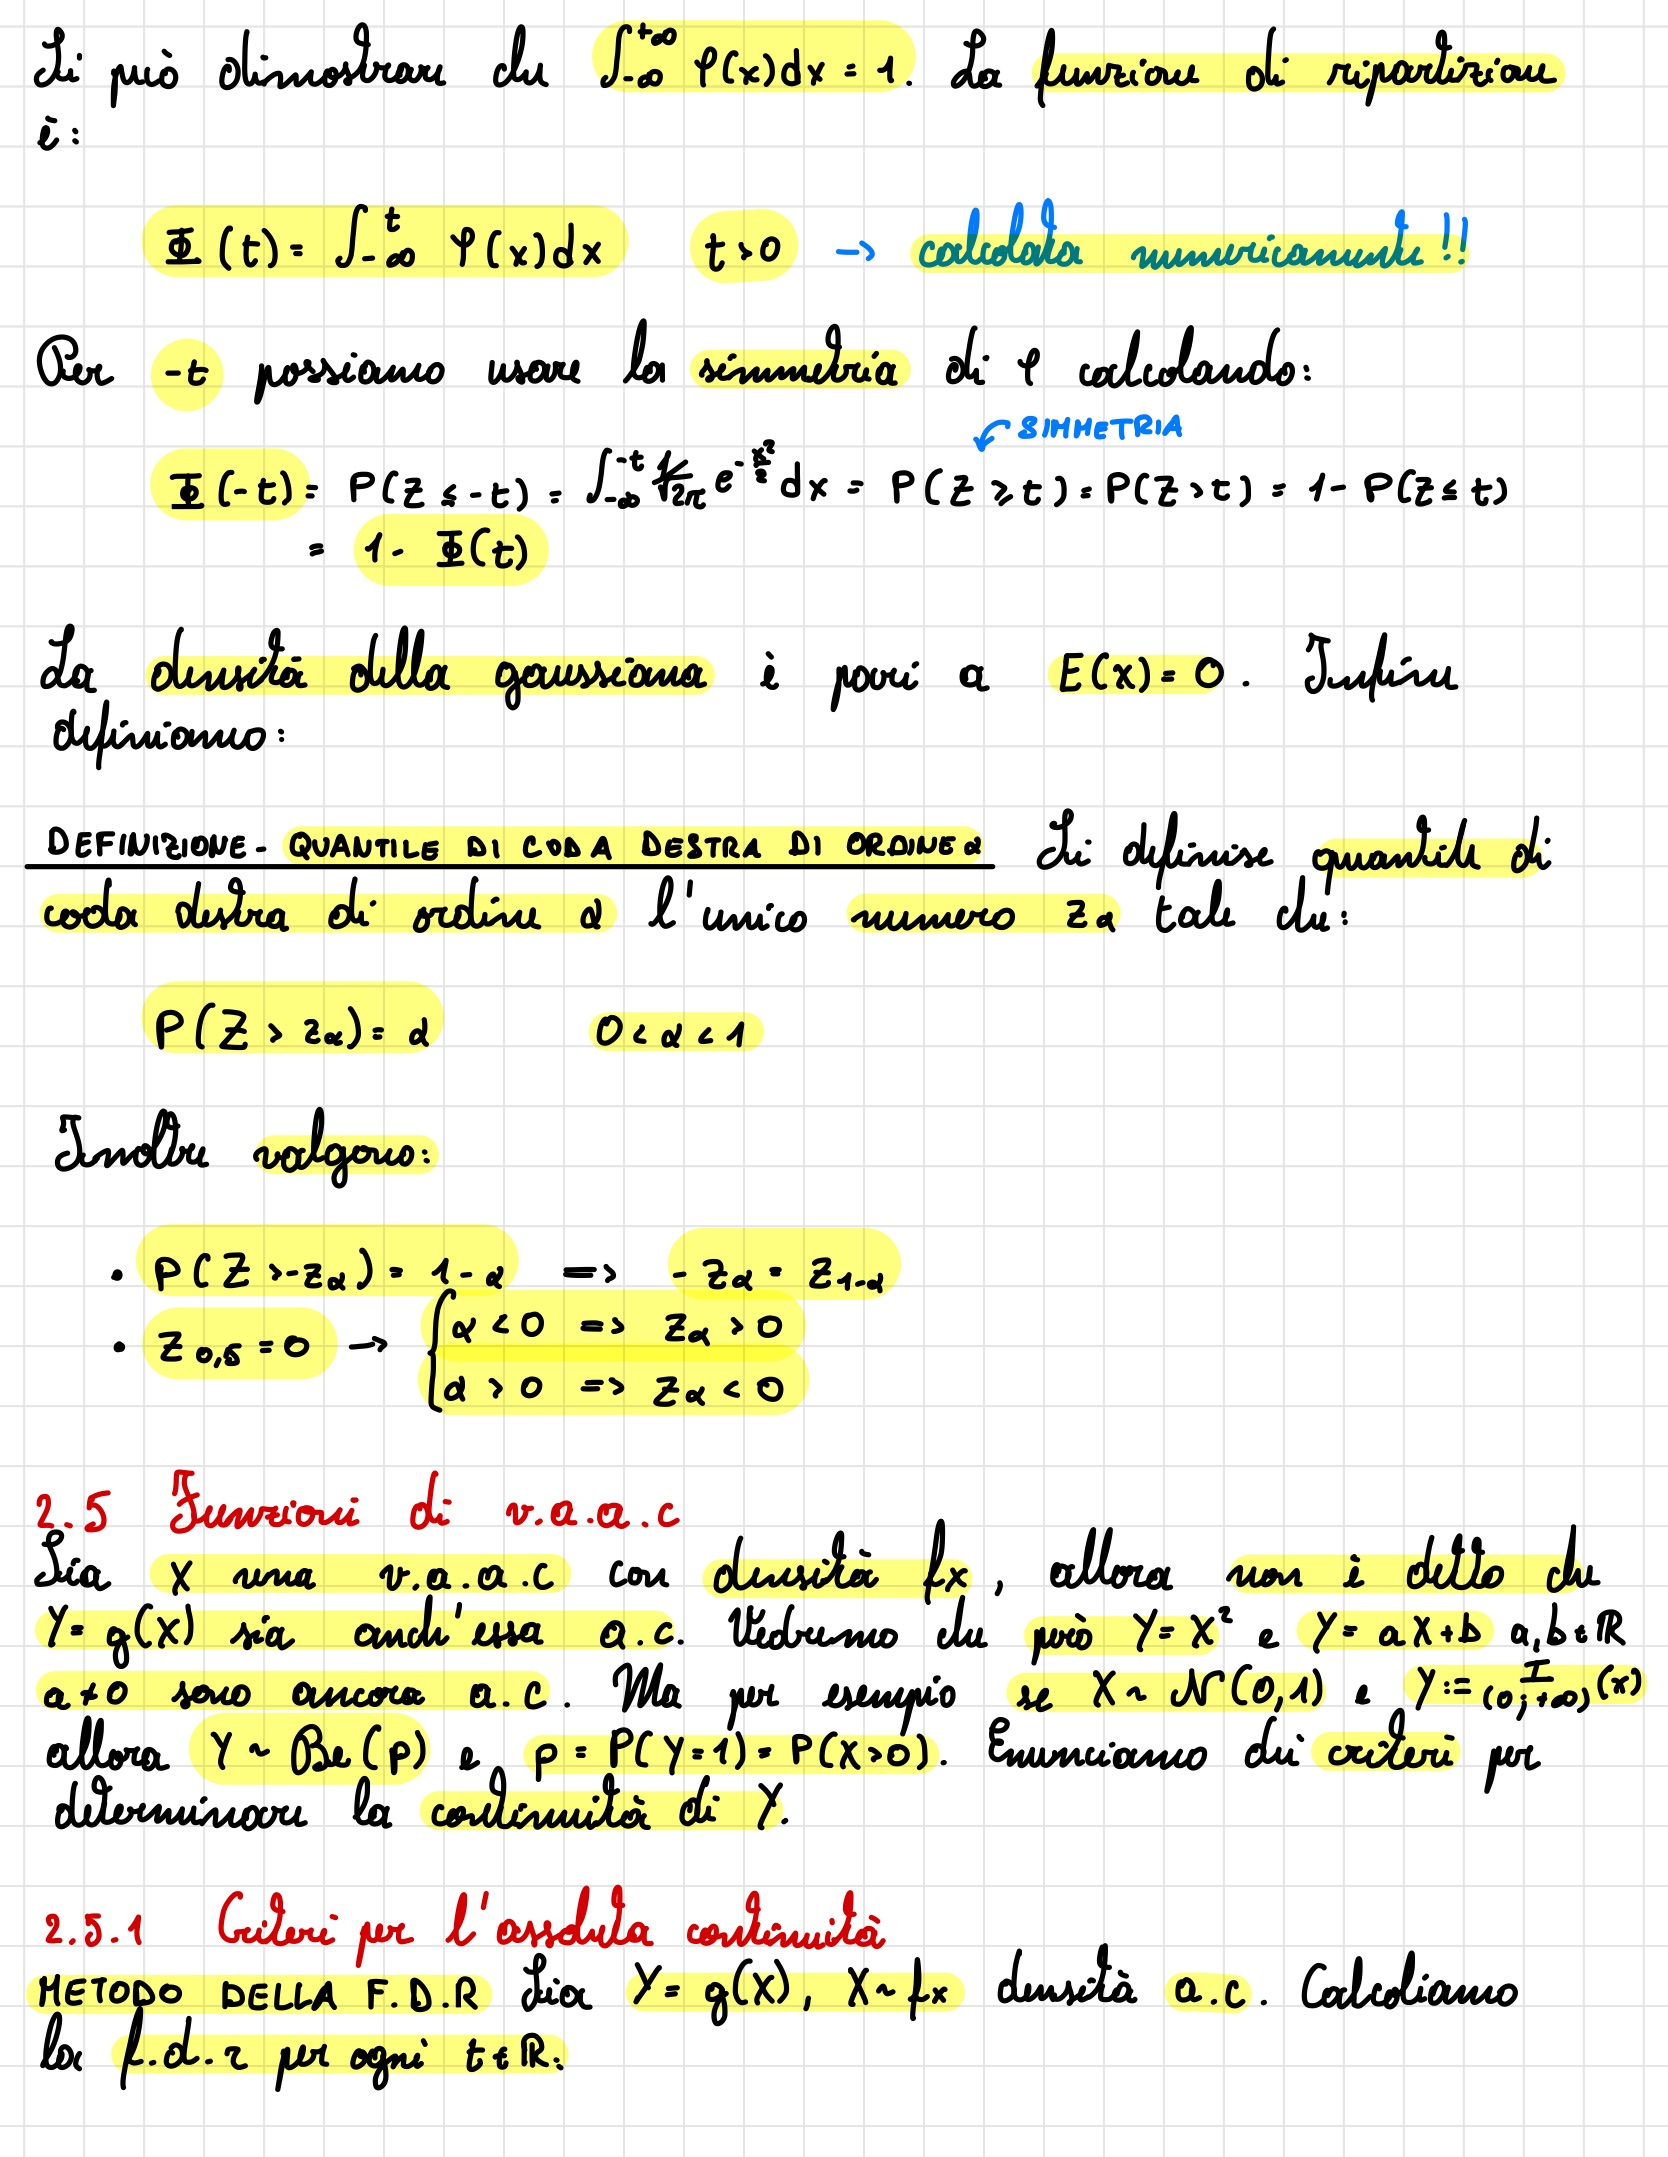 Si può dimostrare che ∫_{-∞}^{+∞} φ(x)dx = 1. La funzione di ripartizione
è:
Φ(t) = ∫_{-∞}^{t} φ(x)dx t>0 → calcolata numericamente!!
Per -t possiamo usare la simmetria di φ calcolando:
SIMMETRIA
Φ(-t) = P(Z ≤ -t) = ∫_{-∞}^{-t} 1/√2π e^{-x²/2} dx = P(Z ≥ t) = P(Z > t) = 1 - P(Z ≤ t)
= 1 - Φ(t)
La densità della gaussiana è pari a E(X) = 0. Infine
definiamo:
DEFINIZIONE - QUANTILE DI CODA DESTRA DI ORDINE α Si definise quantile di
coda destra di ordine α l'unico numero z_α tale che:
P(Z > z_α) = α 0 < α < 1
Inoltre valgono:
• P(Z > -z_α) = 1-α => -z_α = z_{1-α}
• z_{0,5} = 0 → { α < 0 => z_α > 0
α > 0 => z_α < 0
2.5 Funzioni di v.a.a.c
Sia X una v.a.a.c con densità f_X, allora non è detto che
Y = g(X) sia anch'essa a.c. Vedremo che però Y = X² e Y = aX+b a,b ∈ ℝ
a≠0 sono ancora a.c. Ma per esempio se X ~ N(0,1) e Y := I_{(0;+∞)}(x)
allora Y ~ Be(p) e p = P(Y=1) = P(X>0). Enunciamo dei criteri per
determinare la continuità di Y.
2.5.1 Criteri per l'assoluta continuità
METODO DELLA F.D.R Sia Y = g(X), X ~ f_X densità a.c. Calcoliamo
la f.d.r per ogni t ∈ ℝ: